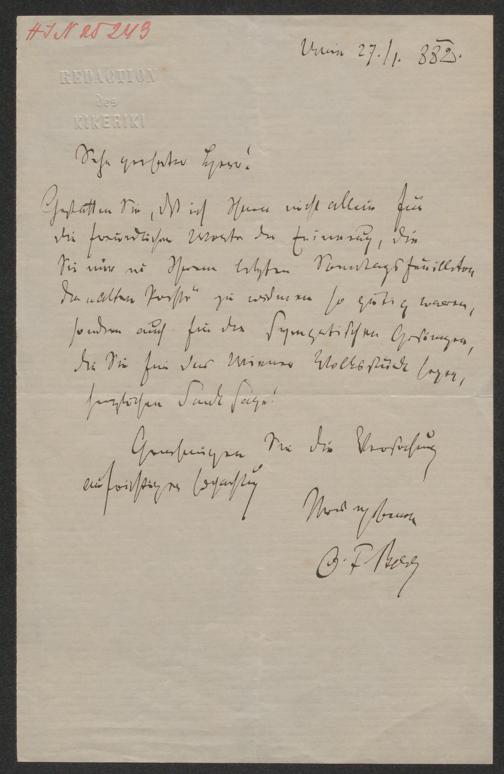 HIN 20 249
Wien 27./1. 882.
REDACTION
des
KIKERIKI
Sehr geehrter Herr!
Gestatten Sie, daß ich Ihnen nicht allein für
die freundlichen Worte der Erinnerung, die
Sie mir in Ihrem letzten Sonntagsfeuilleton
der „alten Presse“ zu widmen so gütig waren,
sondern auch für die sympatischen Gesinnungen,
die Sie für das Wiener Volksstück hegen,
herzlichen Dank sage!
Genehmigen Sie die Versicherung
aufrichtiger Hochachtung
O. F. Berg